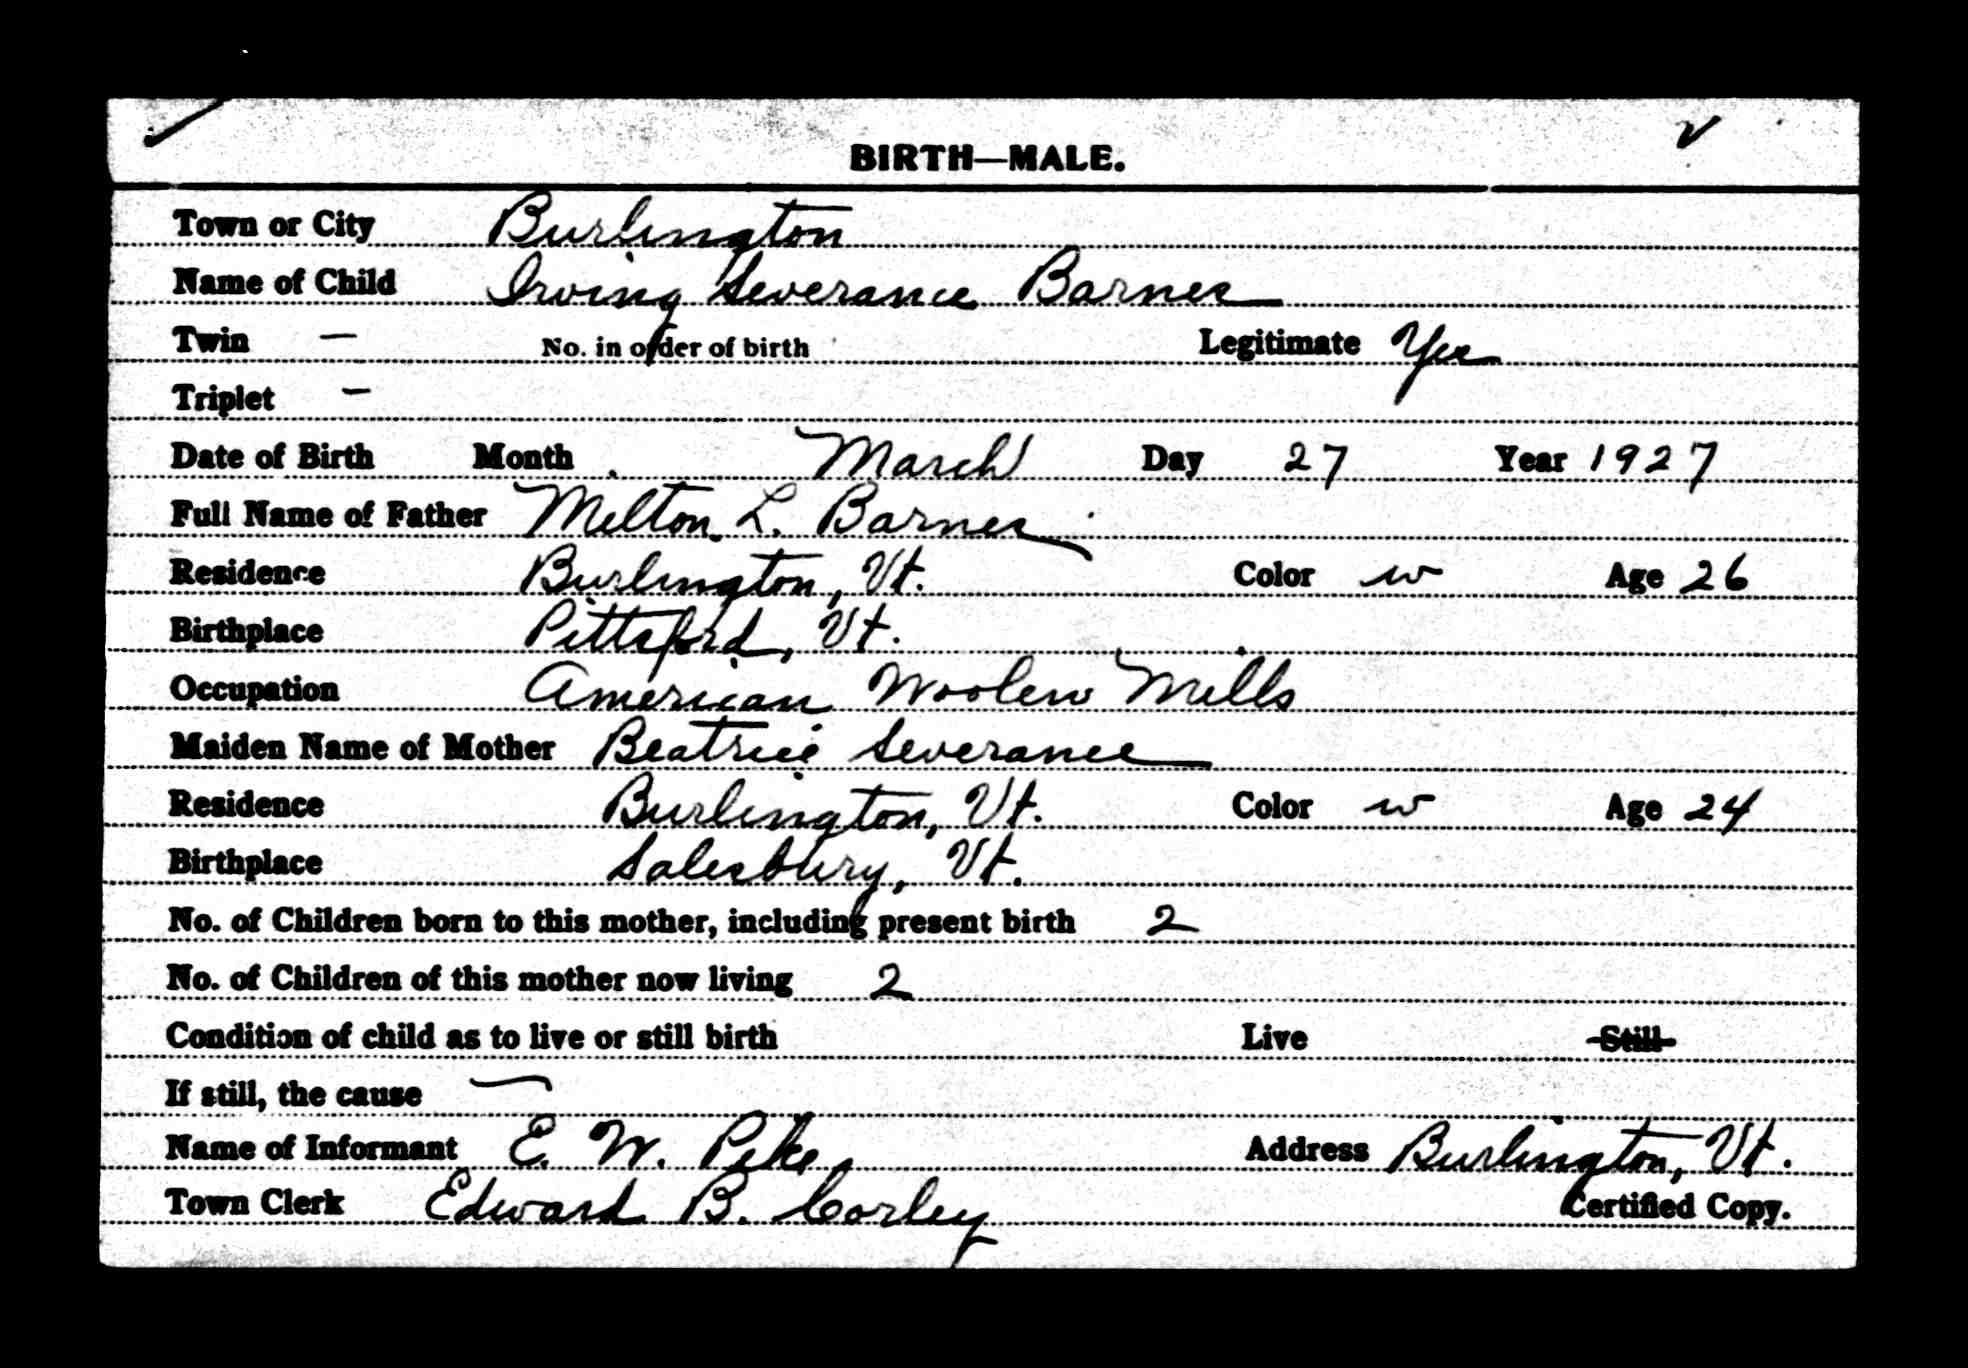 BIRTH—MALE.
Town or City Burlington
Name of Child Irving Severance Barnes
Twin — No. in order of birth Legitimate Yes
Triplet —
Date of Birth Month March Day 27 Year 1927
Full Name of Father Milton L. Barnes
Residence Burlington, Vt. Color w Age 26
Birthplace Pittsford, Vt.
Occupation American Woolen Mills
Maiden Name of Mother Beatrice Severance
Residence Burlington, Vt. Color w Age 24
Birthplace Salesbury, Vt.
No. of Children born to this mother, including present birth 2
No. of Children of this mother now living 2
Condition of child as to live or still birth Live Still
If still, the cause —
Name of Informant E. W. Pike Address Burlington, Vt.
Town Clerk Edward B. Corley Certified Copy.